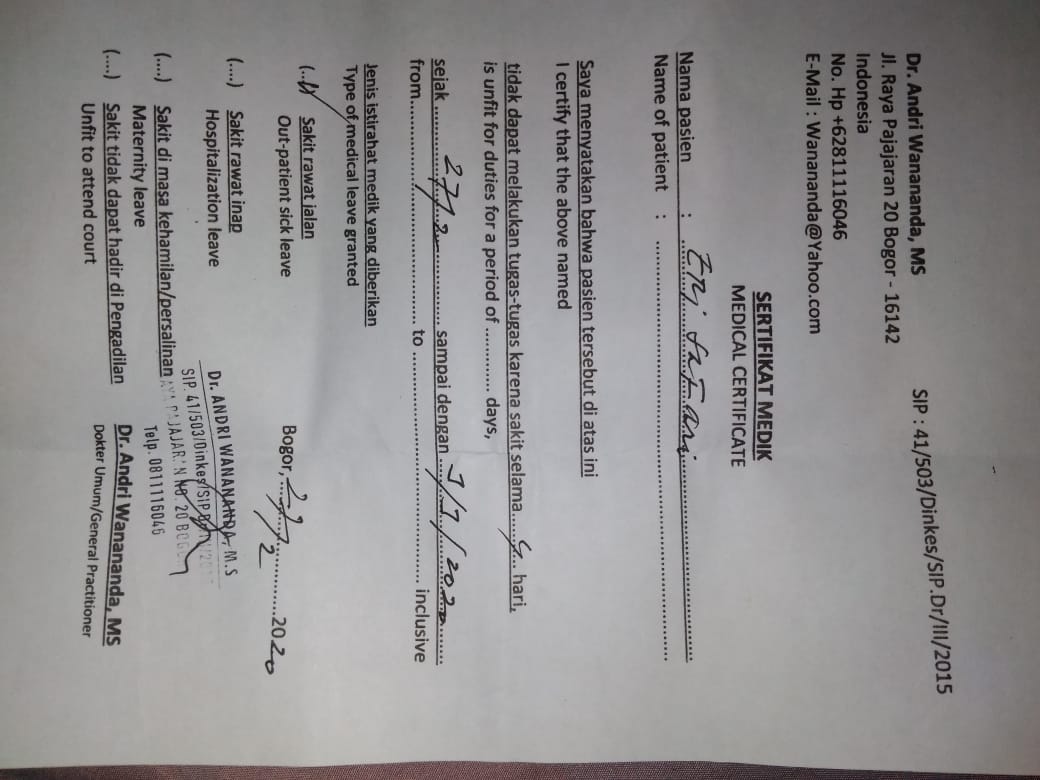 Dr. Andri Wanananda, MS
SIP : 41/503/Dinkes/SIP.Dr/III/2015
Jl. Raya Pajajaran 20 Bogor - 16142
Indonesia
No. Hp +628111116046
E-Mail : Wanananda@Yahoo.com
SERTIFIKAT MEDIK
MEDICAL CERTIFICATE
Nama pasien : Eri Safari
Name of patient : ....................
Saya menyatakan bahwa pasien tersebut di atas ini
I certify that the above named
tidak dapat melakukan tugas-tugas karena sakit selama ...... hari,
is unfit for duties for a period of ............ days,
sejak ........ sampai dengan ........
from.................... to .................... inclusive
Jenis istirahat medik yang diberikan
Type of medical leave granted
(....) Sakit rawat jalan
Out-patient sick leave
(....) Sakit rawat inap
Hospitalization leave
(....) Sakit di masa kehamilan/persalinan
Maternity leave
(....) Sakit tidak dapat hadir di Pengadilan
Unfit to attend court
Bogor, ........ 2020
Dr. ANDRI WANANANDA, M.S
SIP. 41/503/Dinkes/SIP
PAJAJARAN NO. 20
Telp. 0811116046
Dr. Andri Wanananda, MS
Dokter Umum/General Practitioner